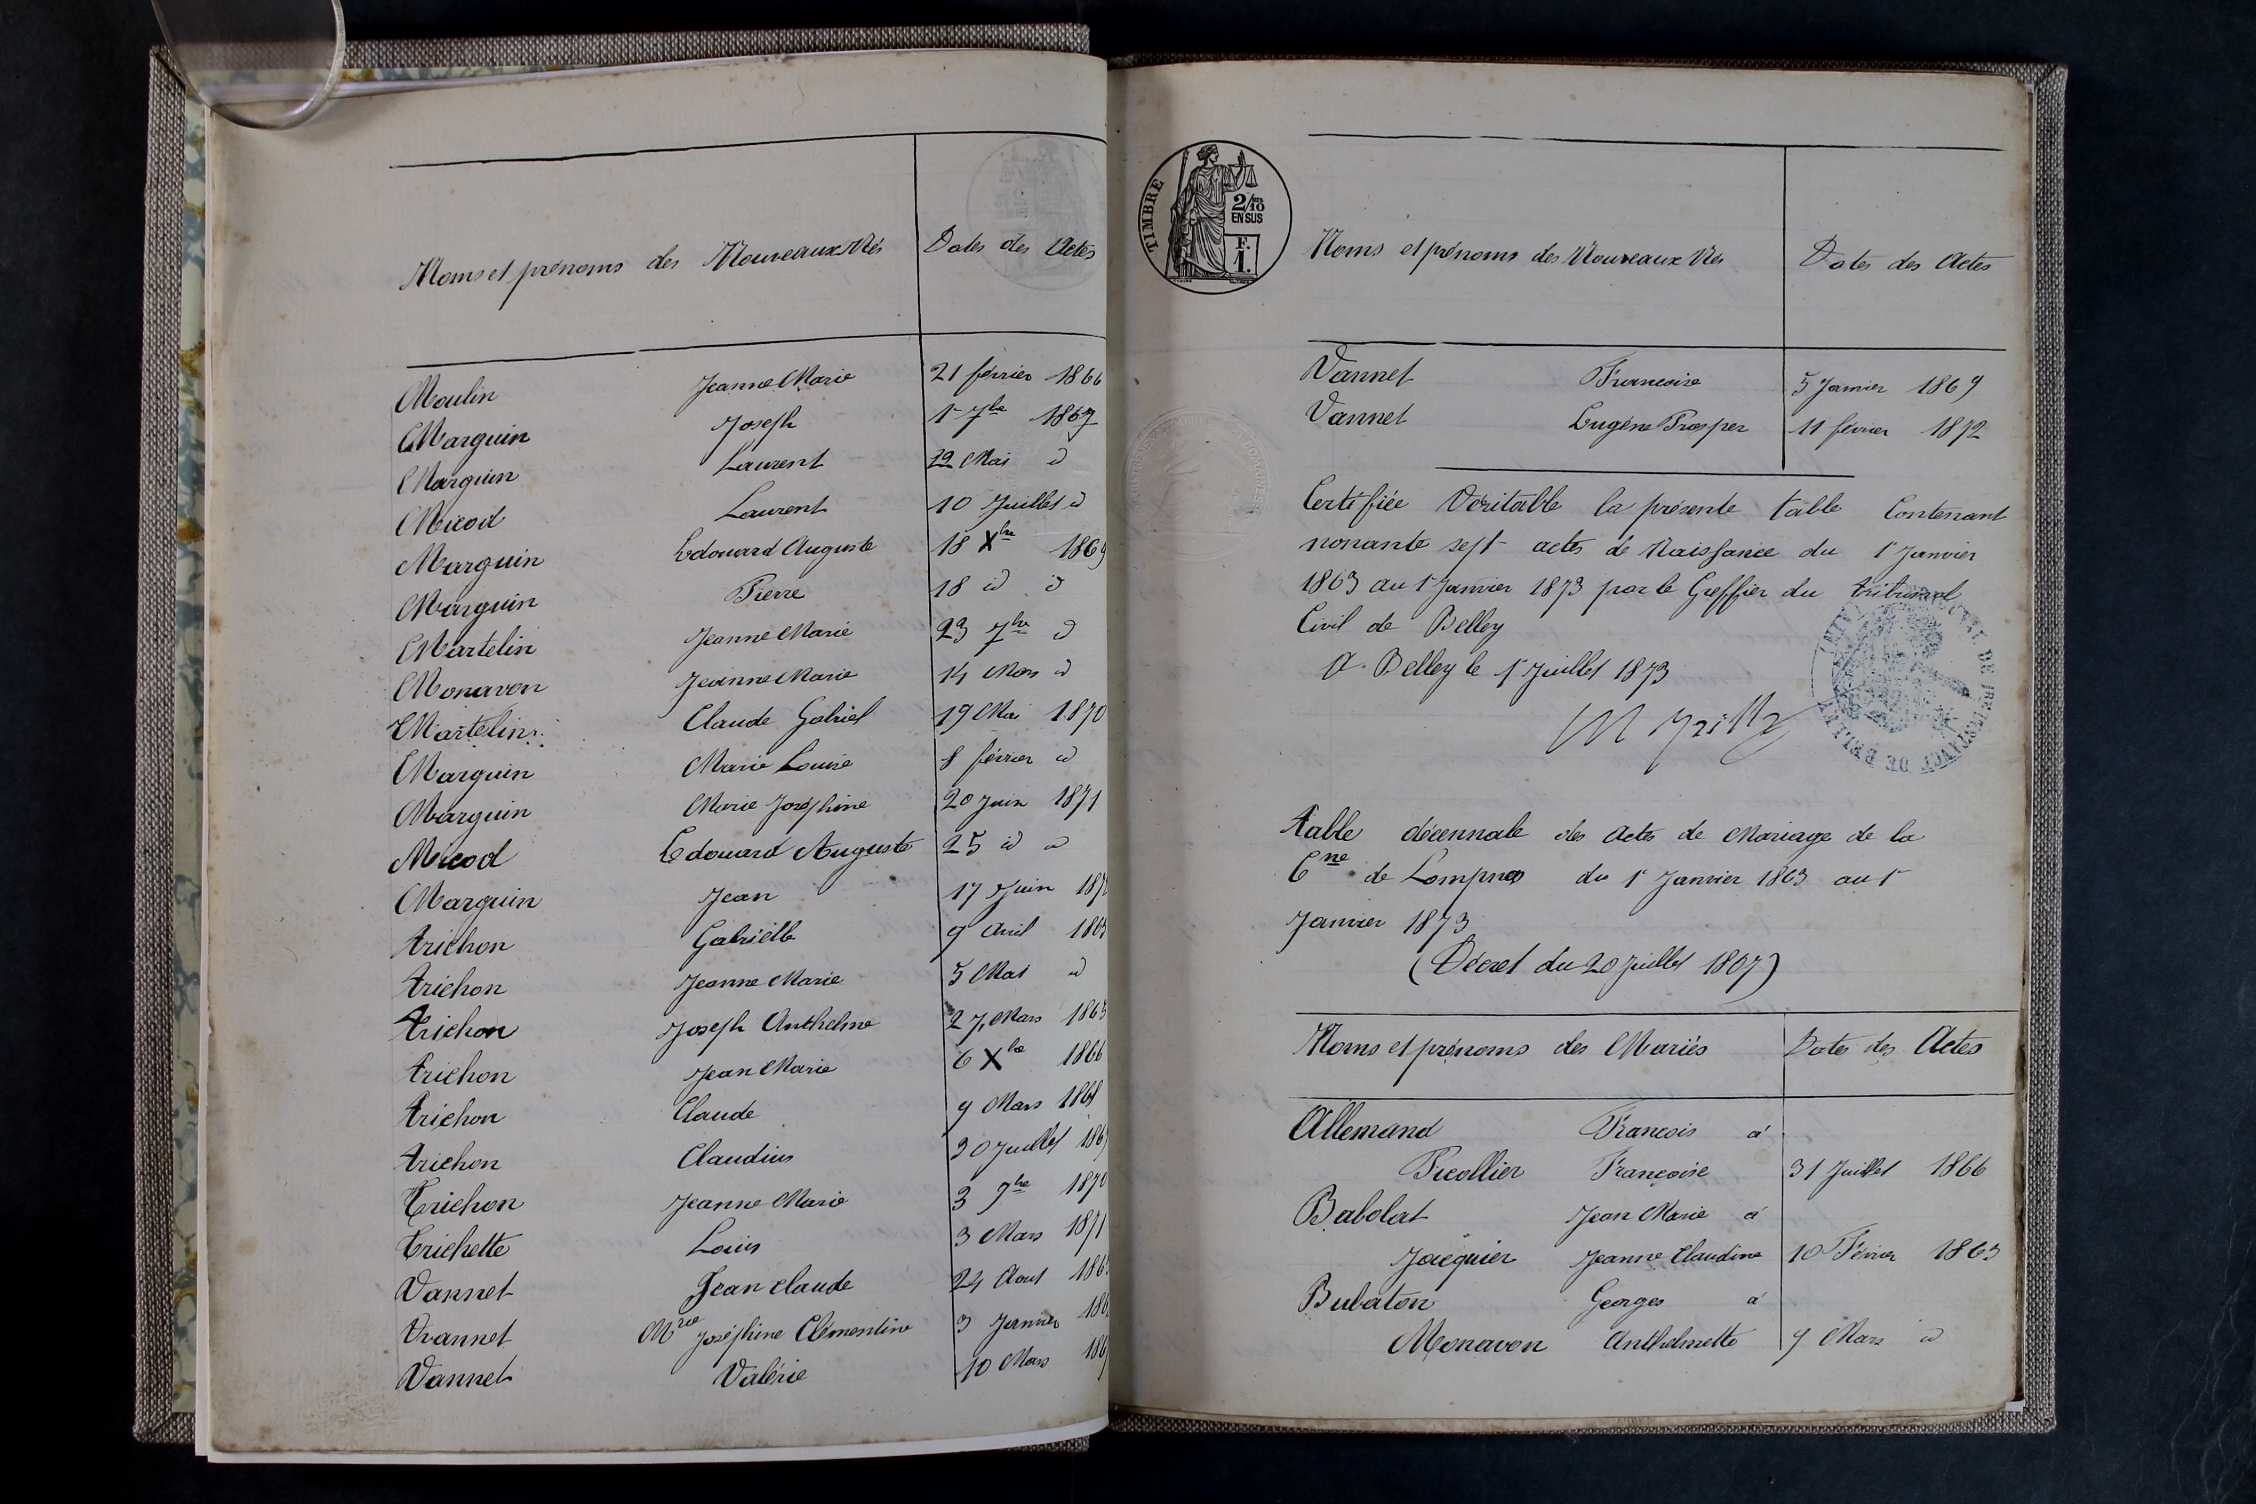 Noms et prénoms des Nouveaux Nés Dates des Actes
Moulin Jeanne Marie 21 février 1866
Marguin Joseph 1r 7bre 1867
Marguin Laurent 12 Mai id
Micod Laurent 10 Juillet id
Marguin Edouard Auguste 18 Xbre 1869
Marguin Pierre 18 id id
Martelin Jeanne Marie 23 7bre id
Monavon Jeanne Marie 14 Mars id
Martelin Claude Gabriel 19 Mai 1870
Marguin Marie Louise 8 février id
Marguin Marie Joséphine 20 Juin 1871
Micod Edouard Auguste 25 id id
Marguin Jean 17 Juin
trichon Gabrielle 9 Avril
trichon Jeanne Marie 5 Mai id
trichon Joseph Anthelme 27 Mars
trichon Jean Marie 6 Xbre 1866
trichon Claude 9 Mars 1868
trichon Claudius 20 Juillet
Trichon Jeanne Marie 3 9bre 1870
Trichette Louis 3 Mars 1871
Vannet Jean Claude 24 Aout
Vannet Mrie Joséphine Clémentine 3 Janvier
Vannet Valérie 10 Mars
TIMBRE
2/10
EN SUS
F.
1.
Noms et prénoms des Nouveaux Nés Dates des Actes
Vannet Francoise 5 Janvier 1869
Vannet Eugène Prosper 11 février 1872
Certifiée Véritable la présente table Contenant
nonante sept actes de Naissance du 1r Janvier
1863 au 1r Janvier 1873 par le Greffier du tribunal
Civil de Belley
A Belley le 1r Juillet 1873
table décennale des Actes de Mariage de la
Cne de Lompnas du 1r Janvier 1863 au 1r
Janvier 1873
(Décret du 20 Juillet 1807)
Noms et prénoms des Mariés Dates des Actes
Allemand Francois à
Picollier Françoise 31 Juillet 1866
Babolat Jean Marie à
Jacquier Jeanne Claudine 10 Février 1863
Bubaton Georges à
Monavon Anthelmette 9 Mars id